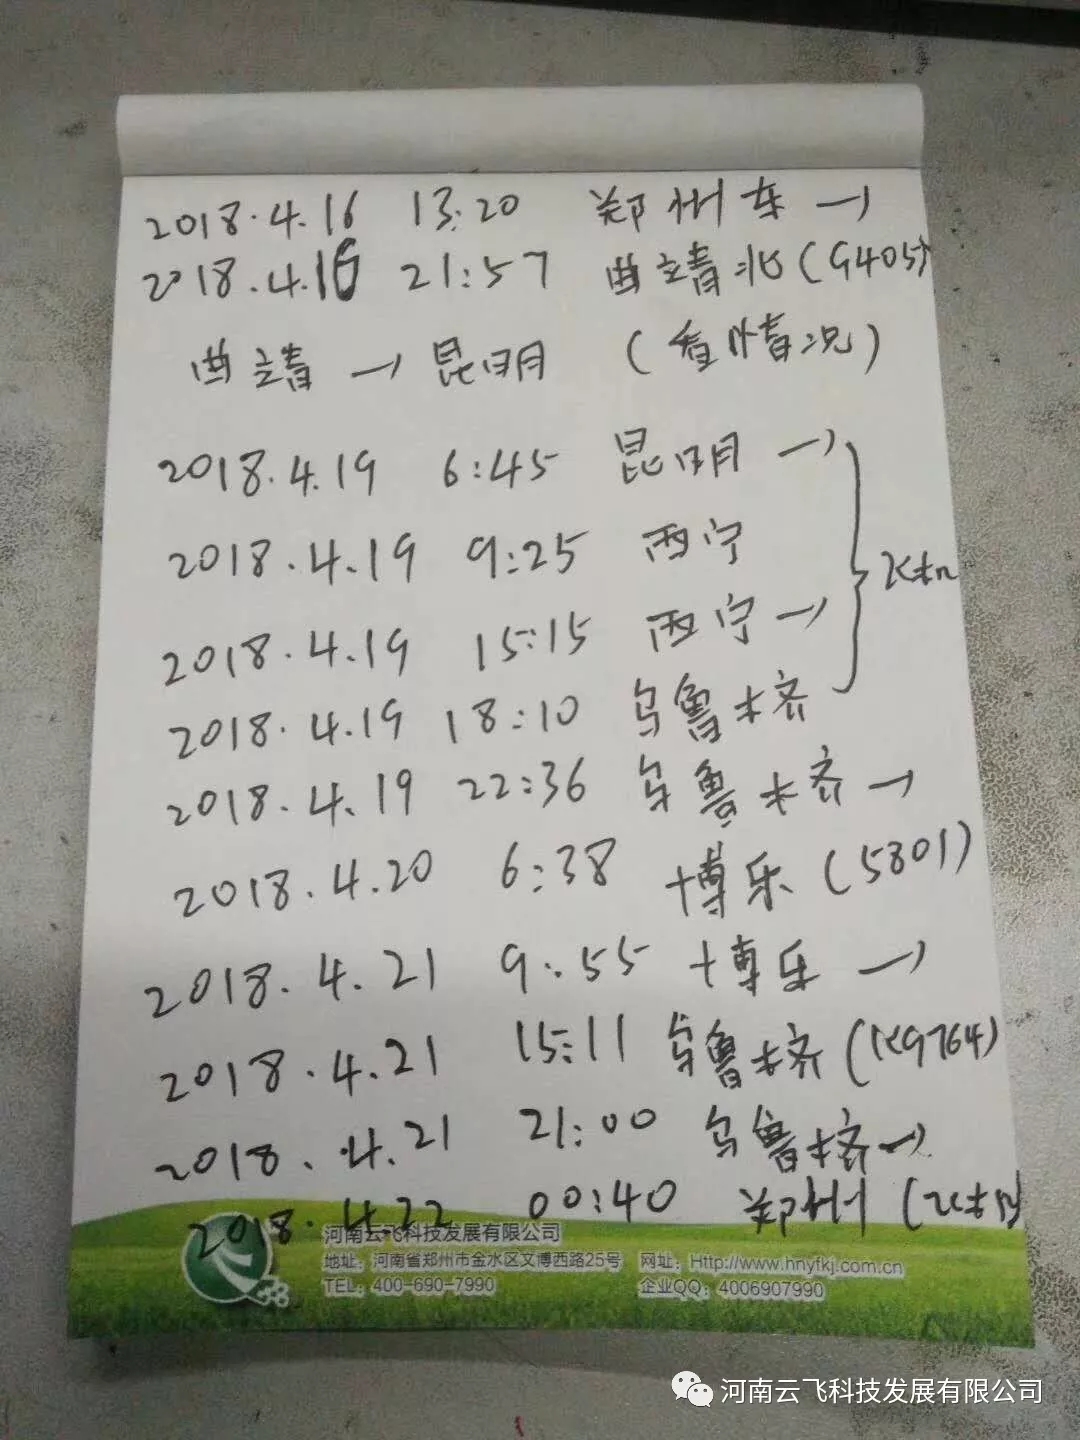 2018.4.16 13:20 郑州东→
2018.4.16 21:57 曲靖北(G405)
曲靖→昆明 (看情况)
2018.4.19 6:45 昆明→
2018.4.19 9:25 西宁
2018.4.19 15:15 西宁→
2018.4.19 18:10 乌鲁木齐
2018.4.19 22:36 乌鲁木齐→
2018.4.20 6:38 博乐(5801)
2018.4.21 9:55 博乐→
2018.4.21 15:11 乌鲁木齐(K9764)
2018.4.21 21:00 乌鲁木齐→
2018.4.22 00:40 郑州
河南云飞科技发展有限公司
地址：河南省郑州市金水区文博西路25号 网址：Http://www.hnyfkj.com.cn
TEL：400-690-7990 企业QQ：4006907990
河南云飞科技发展有限公司